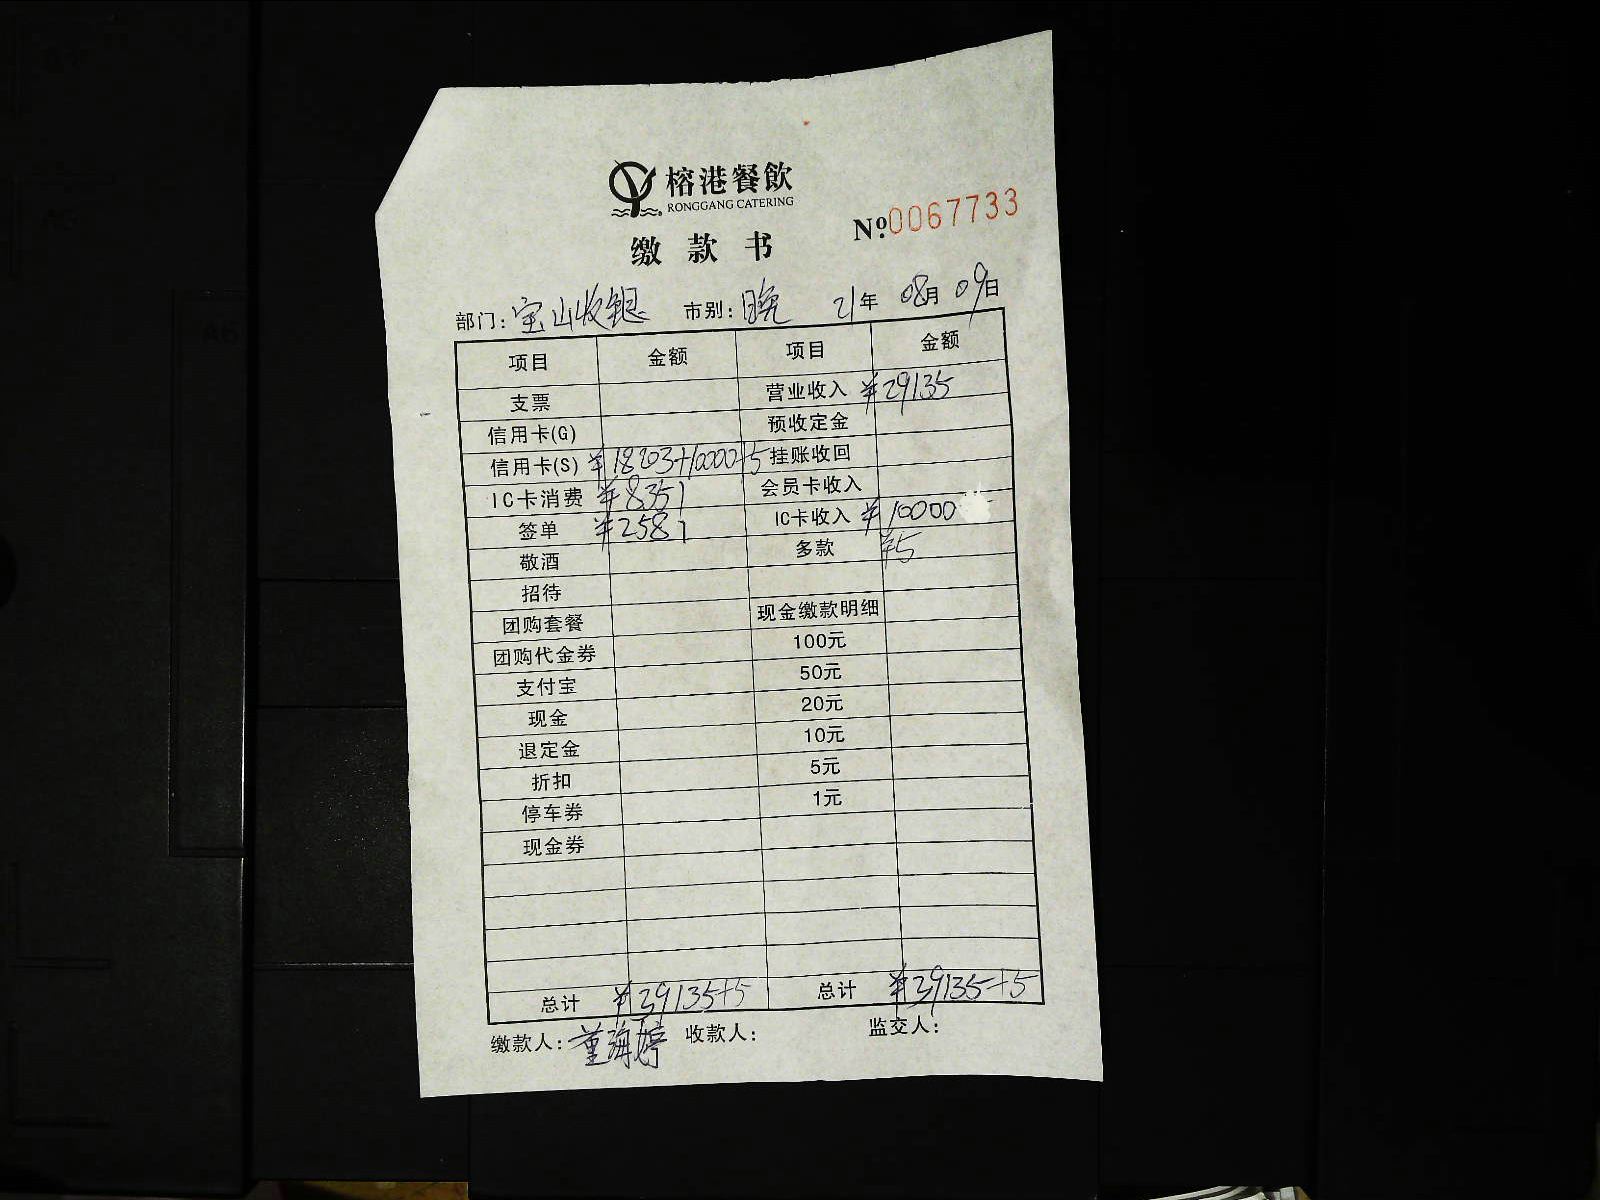 榕港餐飲
RONGGANG CATERING
№0067733
缴款书
部门: 宝山收银 市别: 晚 21年 08月 09日
项目 金额 项目 金额
支票 营业收入 ¥29135
信用卡(G) 预收定金
信用卡(S) ¥18203+10000+5 挂账收回
IC卡消费 ¥8351 会员卡收入
签单 ¥2581 IC卡收入 ¥10000
敬酒 多款 ¥5
招待
团购套餐 现金缴款明细
团购代金券 100元
支付宝 50元
现金 20元
退定金 10元
折扣 5元
停车券 1元
现金券
总计 ¥39135+5 总计 ¥39135+5
缴款人: 董海婷 收款人: 监交人: